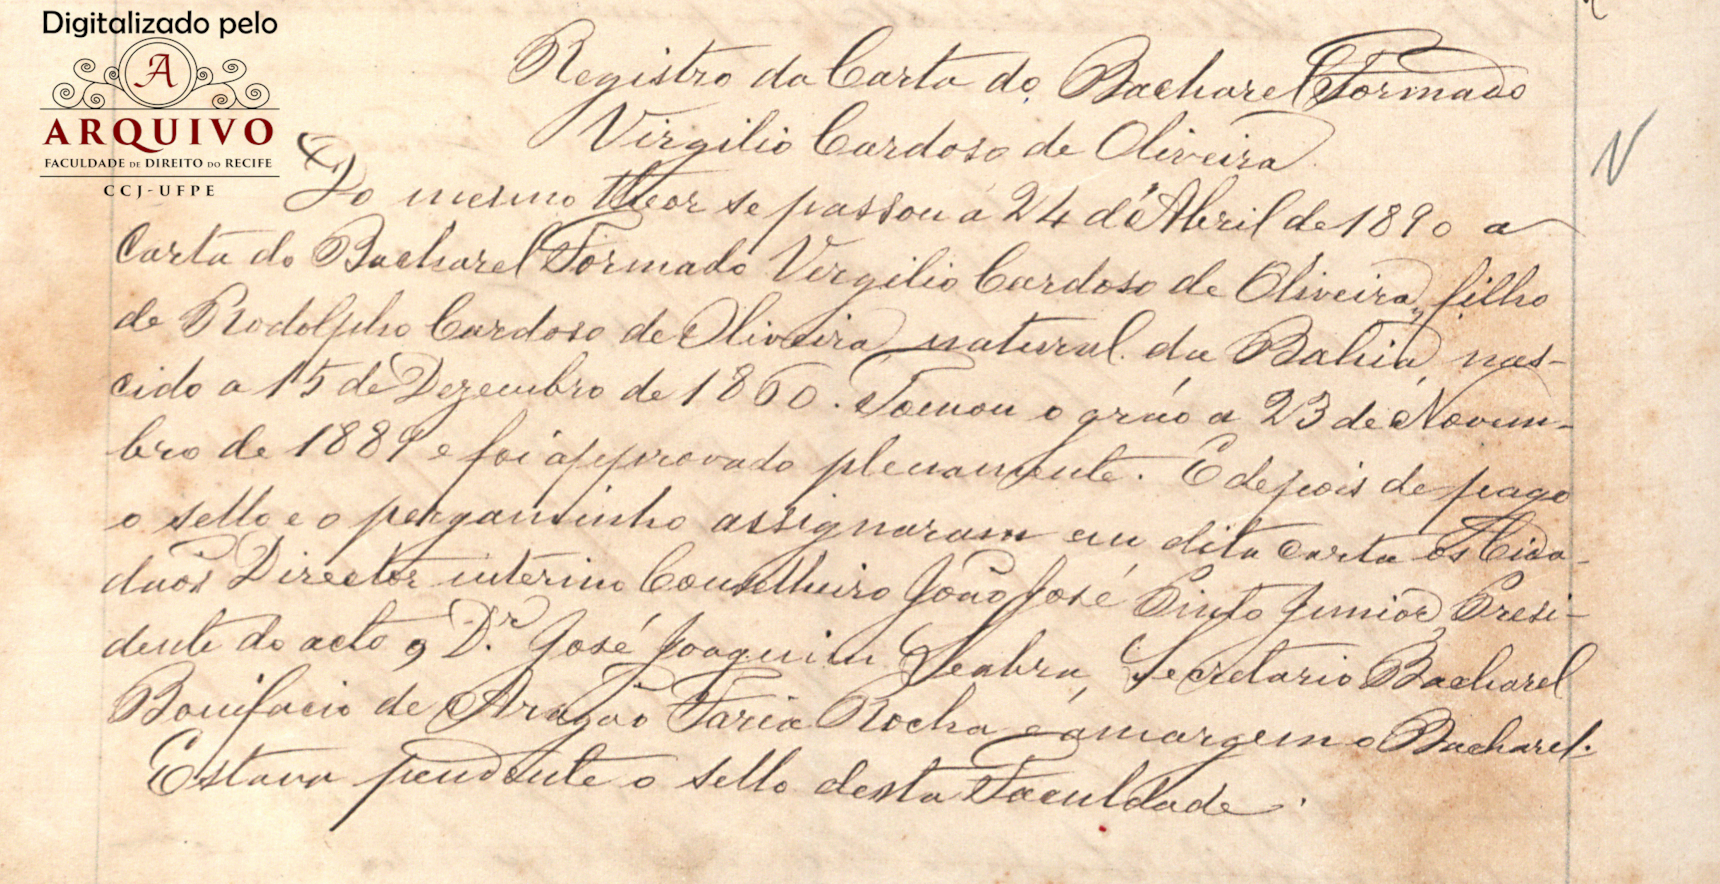 Digitalizado pelo
A
ARQUIVO
FACULDADE DE DIREITO DO RECIFE
CCJ-UFPE
Registro da Carta do Bacharel Formado
Virgilio Cardoso de Oliveira
N
Do mesmo theor se passou a 24 d'Abril de 1890 a
Carta do Bacharel Formado Virgilio Cardoso de Oliveira, filho
de Rodolpho Cardoso de Oliveira natural da Bahia, nas-
cido a 15 de Dezembro de 1860. Tomou o gráo a 23 de Novem-
bro de 1889 e foi approvado plenamente. E depois de pago
o sello e o pergaminho assignaram em dita carta os Cida-
dãos Director interino Conselheiro João José Pinto Junior Presi-
dente do acto o Dr. José Joaquim Seabra, Secretario Bacharel
Bonifacio de Aragão Faria Rocha e á margem o Bacharel.
Estava pendente o sello desta Faculdade.